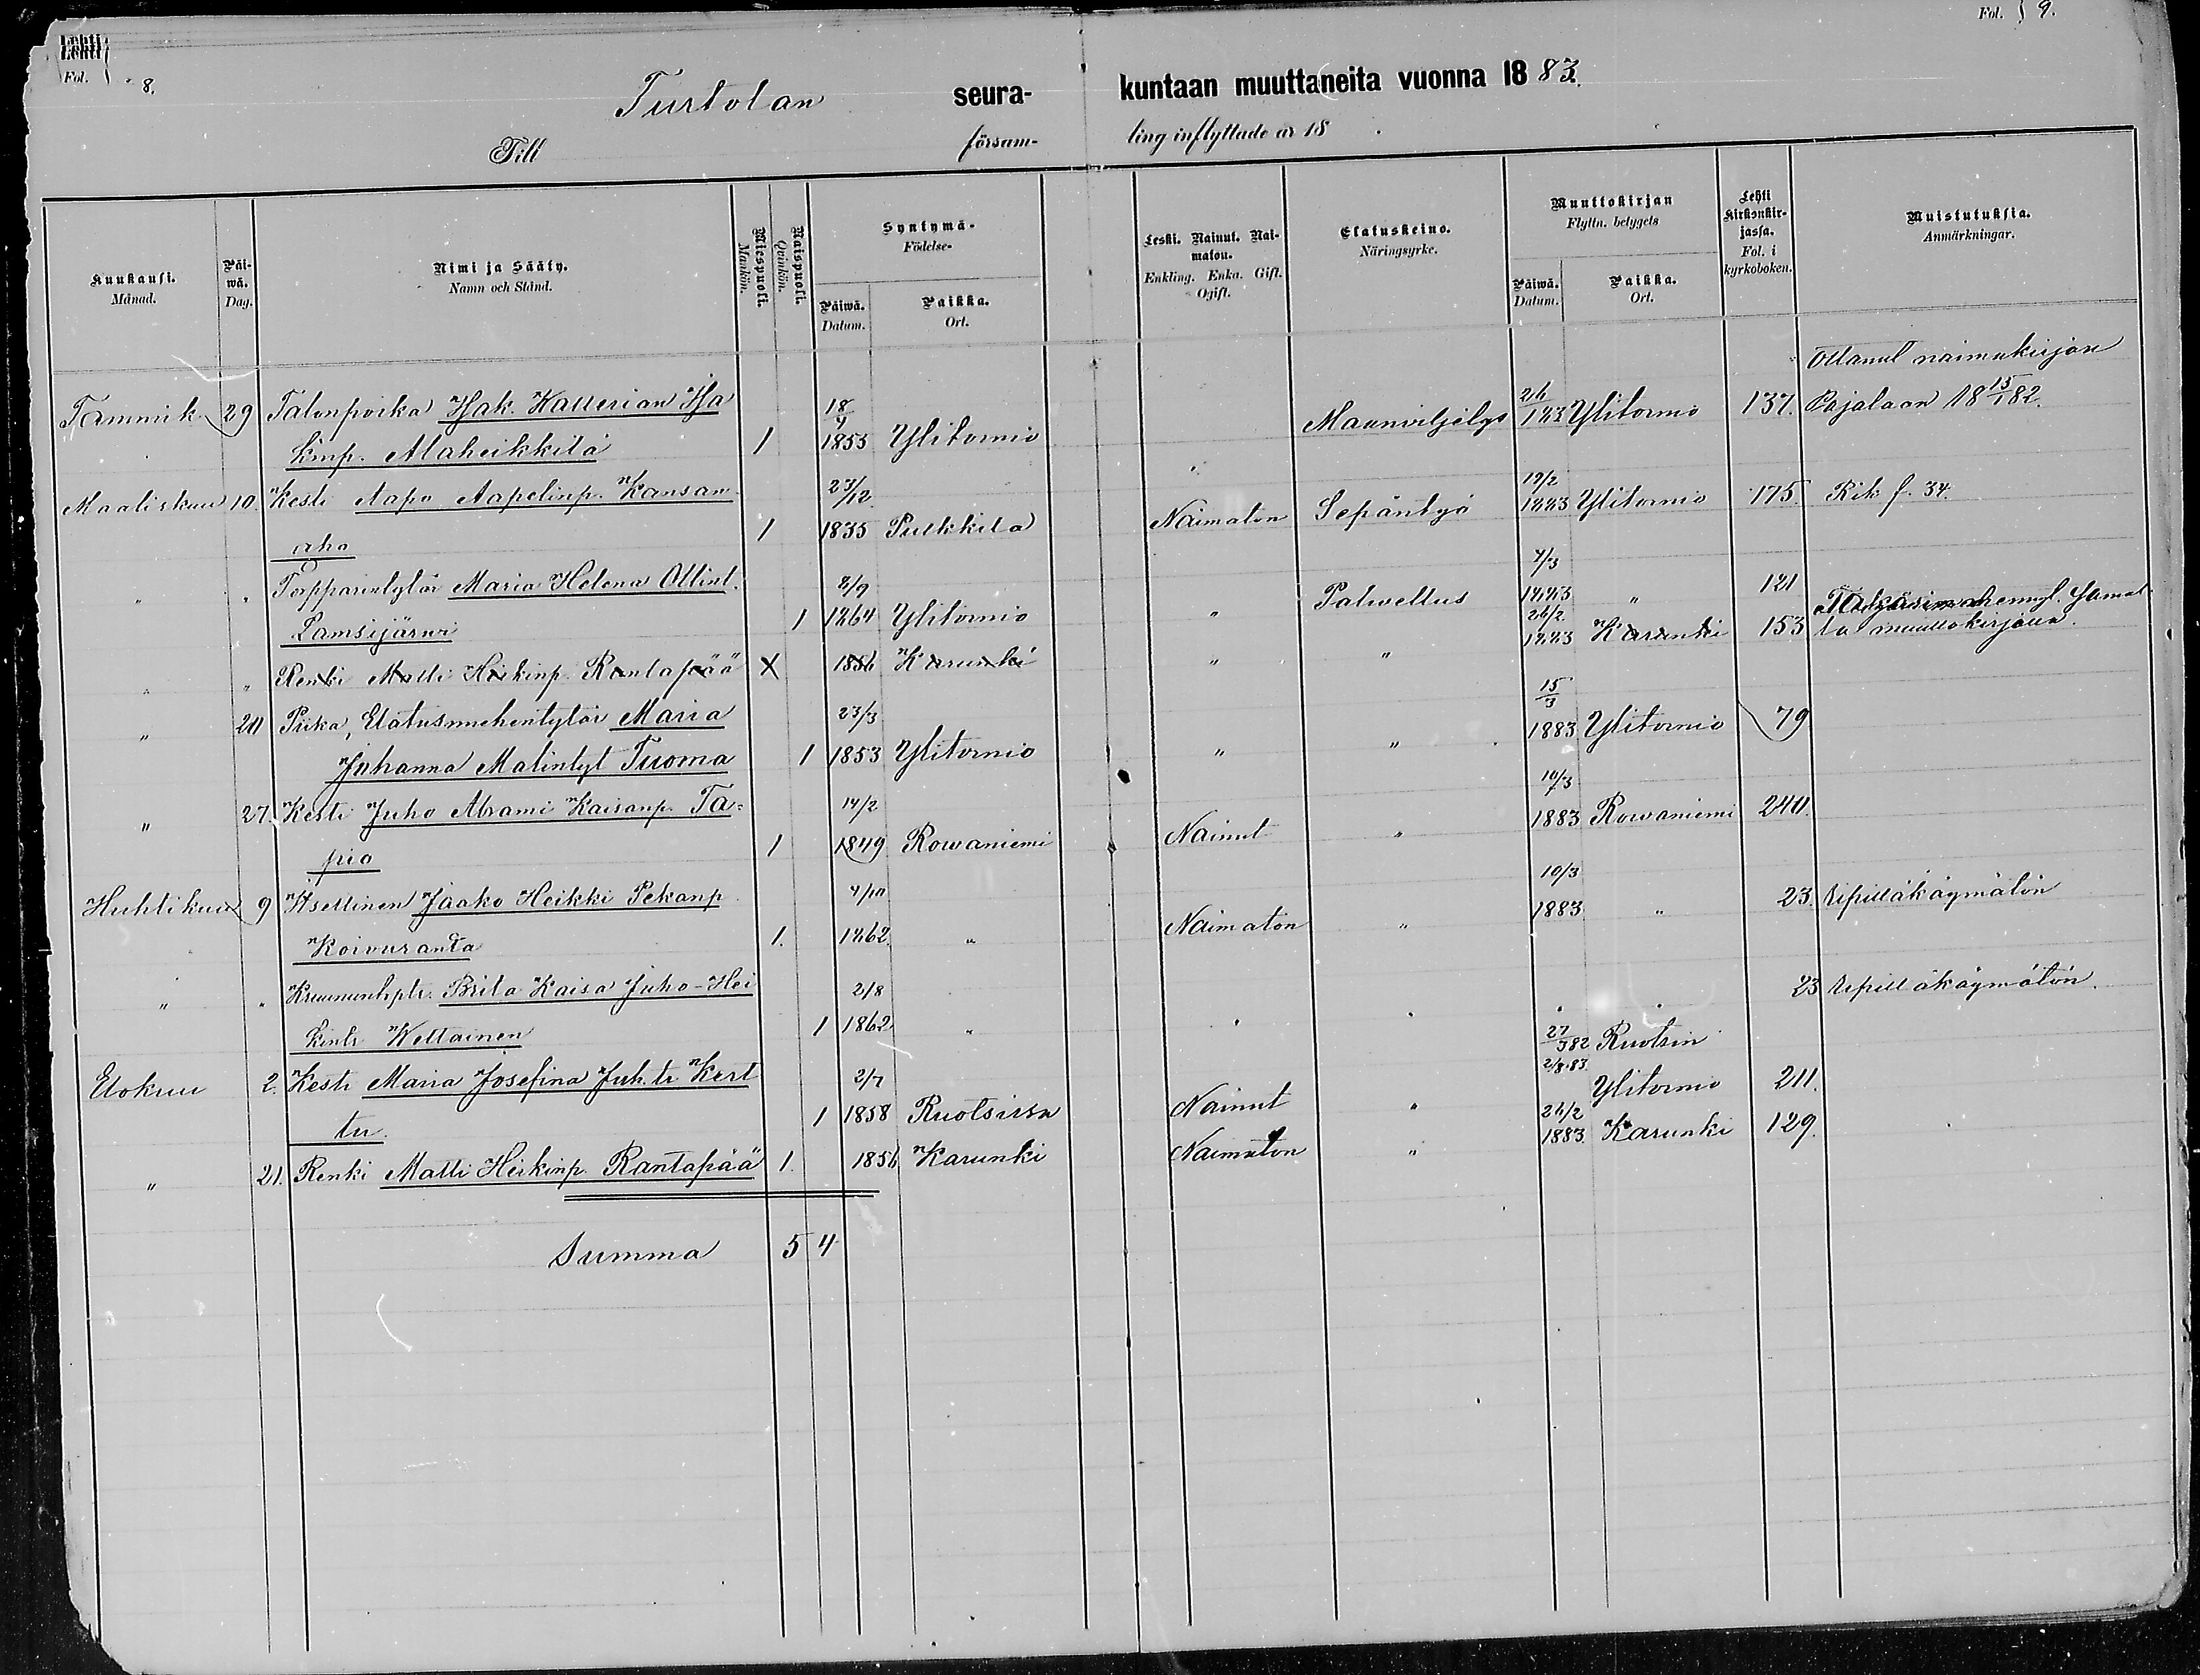 Lehti
Fol. 8.
Fol. 9.
Turtolan seura- kuntaan muuttaneita vuonna 1883.
Till försam- ling inflyttade år 18 .
Kuukausi. Månad.
Päi-wä. Dag.
Nimi ja Sääty. Namn och Stånd.
Miespuoli. Mankön.
Naispuoli. Qvinkön.
Syntymä- Födelse-
Päiwä. Datum.
Paikka. Ort.
Leski. Nainut. Nai-maton. Enkling. Enka. Gift. Ogift.
Elatuskeino. Näringsyrke.
Muuttokirjan Flyttn. betygets
Päiwä. Datum.
Paikka. Ort.
Lehti Kirkonkir-jassa. Fol. i kyrkoboken.
Muistutuksia. Anmärkningar.
Ottanut naimakirjan
Tammik. 29 Talonpoika Isak Kallerian Isa 18/4 26/1 83 Ylitornio 137. Pajalaan 18 15/1 82.
kinp. Alaheikkilä 1 1855 Ylitornio Maanviljelys
Maaliskuu 10. Kesti Aapo Aapelinp. Kansan 23/12 19/2 1883 Ylitornio 175. Rik f. 34.
aho 1 1835 Pulkkila Naimaton Sepäntyö
" " Torpparintytär Maria Helena Ollint. 8/9 4/3 1883 " 121
Lamsijärwi 1 1864 Ylitornio " Palwellus
" " Renki Matti Heikinp. Rantapää X 1856 Karunki " " 26/2 1883 Karunki 153 muuttokirjaan.
" 20 Piika, Elatusmiehentytär Maria 23/3 15/3 1883 Ylitornio 79
Johanna Matintyt Tuoma 1 1853 Ylitornio " "
" 27. Kesti Juho Abrami Kaisanp. Ta- 14/2 10/3 1883 Rowaniemi 240.
pio 1 1849 Rowaniemi Nainut "
Huhtikuu 9 Itsellinen Jaako Heikki Pekanp. 4/10 10/3 1883 " 23. Ripilläkäymätön
Koivuranta 1. 1862 " Naimaton "
" " Kruununtptr. Brita Kaisa Juho-Hei 2/8 " " 23 Ripilläkäymätön.
kintr Wettainen 1 1862 " " "
Elokuu 2. Kesti Maria Josefina Juh. tr Kert 2/7 27/3 82 Ruotsin
tu. 1 1858 Ruotsissa Nainut " 2/8 83 Ylitornio 211.
" 21. Renki Matti Heikinp. Rantapää 1. 1856 Karunki Naimaton " 26/2 1883. Karunki 129.
Summa 5 4